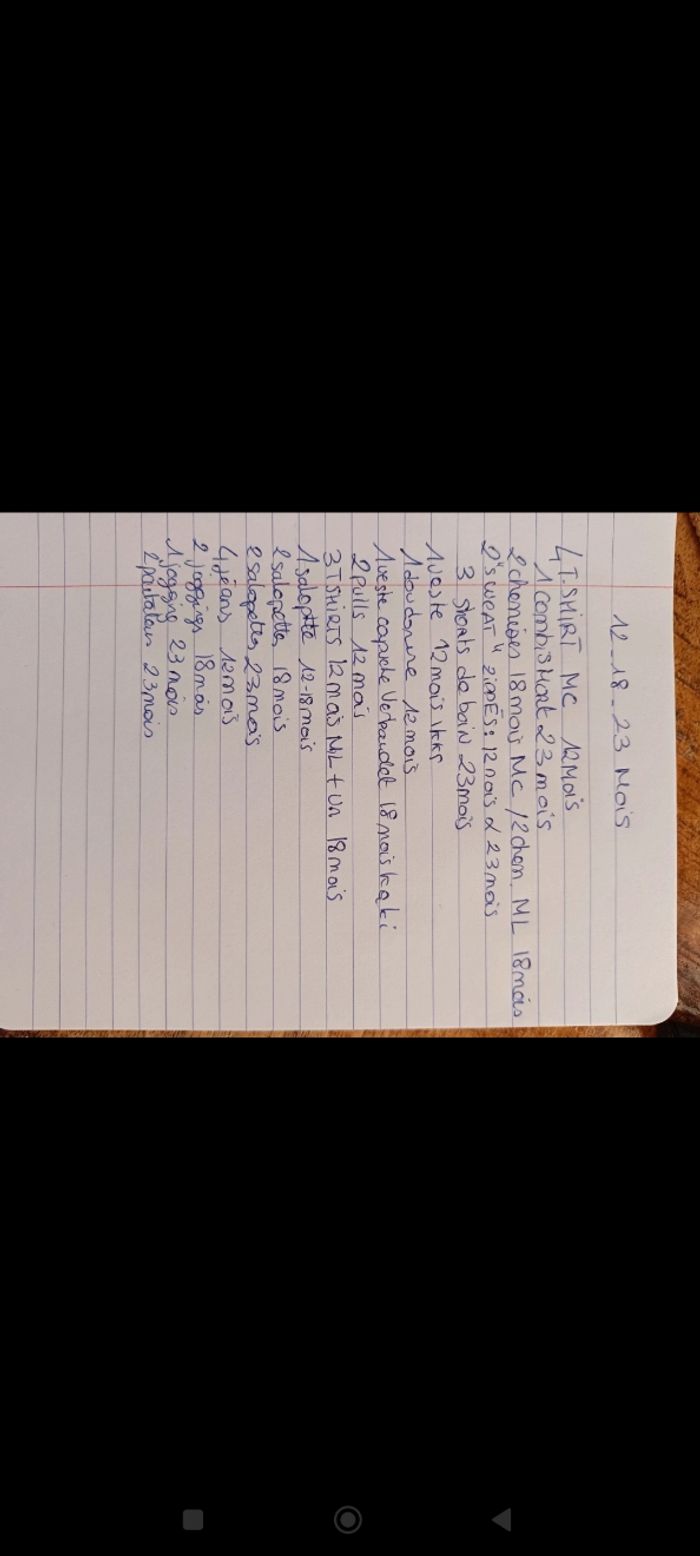 12-18-23 Mois
4 T.SHIRT MC 12Mois
1 combi SHORT 23 mois
2 chemises 18 mois MC / 2 chem. ML 18 mois
2 "sweat" zippés : 12 mois & 23 mois
3 shorts de bain 23 mois
1 veste 12 mois ikks
1 doudoune 12 mois
1 veste capuche Vertbaudet 18 mois kaki
2 pulls 12 mois
3 T SHIRTS 12 mois ML + un 18 mois
1 salopette 12-18 mois
2 salopettes 18 mois
2 salopettes 23 mois
4 jeans 12 mois
2 joggings 18 mois
1 jogging 23 mois
2 pantalons 23 mois